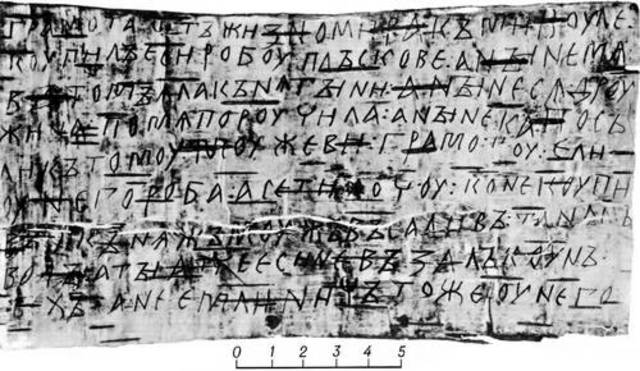 грамота : ѡтъ жизномира : къ микоуле :
коупилъ еси : робоу : плъскове : а нынѣ мѧ
въ томъ : ѧла кънѧгыни : а нынѣ сѧ дроу
жина : по мѧ пороучила : а нынѣ ка : посъ
ли къ томоу : моужеви : грамотоу : ели
оу него роба : а се ти хочоу : коне коупи
въ : и кънѧжъ моужъ въсадивъ : та на съ
воды : а ты атче еси не възалъ коунъ :
техъ : а не емли : ничъто же оу него :
0 1 2 3 4 5